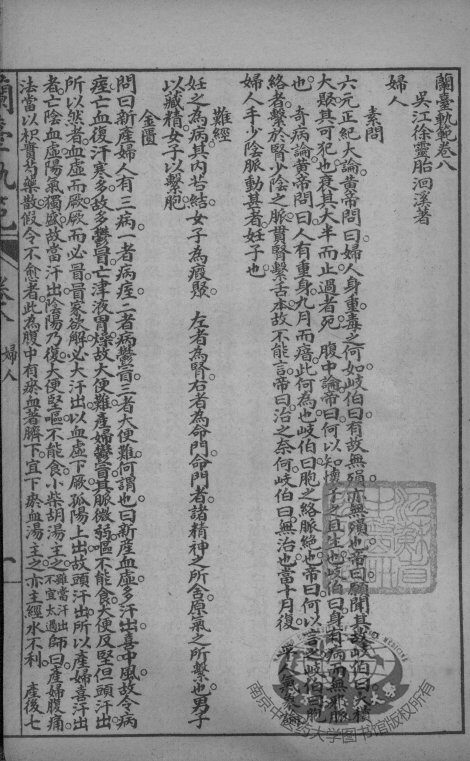 蘭臺軌範卷八
吳江徐靈胎洄溪著
婦人
素問
六元正紀大論黃帝問曰婦人身重毒之何如岐伯曰有故無殞亦無殞也帝曰願聞其故岐伯曰大積
大聚其可犯也衰其大半而止過者死 腹中論帝曰何以知懷子之且生也岐伯曰身有病而無邪脈
也 奇病論黃帝問曰人有重身九月而瘖此何為也岐伯曰胞之絡脈絕也帝曰何以言之岐伯曰胞
絡者繫於腎少陰之脈貫腎繫舌本故不能言帝曰治之奈何岐伯曰無治也當十月復 平人氣象論
婦人手少陰脈動甚者妊子也
難經
任之為病其內苦結女子為瘕聚 左者為腎右者為命門命門者諸精神之所舍原氣之所繫也男子
以藏精女子以繫胞
金匱
問曰新產婦人有三病一者病痙二者病鬱冒三者大便難何謂也曰新產血虛多汗出喜中風故令病
痙亡血復汗寒多故令鬱冒亡津液胃燥故大便難產婦鬱冒其脈微弱嘔不能食大便反堅但頭汗出
所以然者血虛而厥厥而必冒冒家欲解必大汗出以血虛下厥孤陽上出故頭汗出所以產婦喜汗出
者亡陰血虛陽氣獨盛故當汗出陰陽乃復大便堅嘔不能食小柴胡湯主之雖當汗出不宜太過師曰產婦腹痛
法當以枳實芍藥散假令不愈者此為腹中有瘀血著臍下宜下瘀血湯主之亦主經水不利 產後七
蘭臺軌範
卷八
婦人
一
南京中医药大学图书馆版权所有